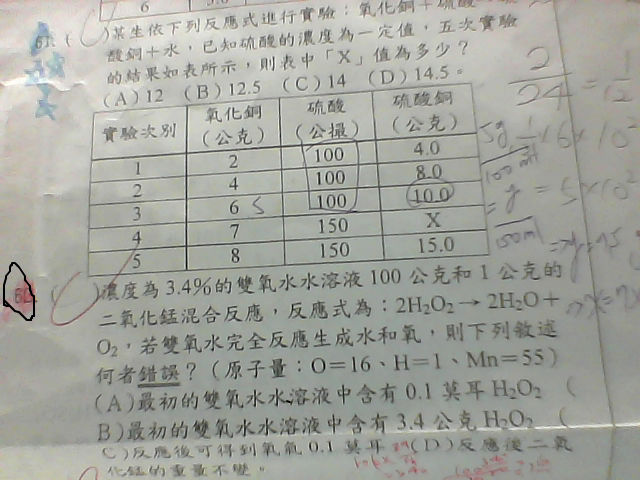 6 3.0
61. ( )某生依下列反應式進行實驗：氧化銅＋硫酸→
酸銅＋水，已知硫酸的濃度為一定值，五次實驗
的結果如表所示，則表中「X」值為多少？
(A)12 (B)12.5 (C)14 (D)14.5。
實驗次別 氧化銅(公克) 硫酸(公撮) 硫酸銅(公克)
1 2 100 4.0
2 4 100 8.0
3 6 5 100 10.0
4 7 150 X
5 8 150 15.0
( )濃度為3.4%的雙氧水水溶液100公克和1公克的
二氧化錳混合反應，反應式為：2H₂O₂→2H₂O＋
O₂，若雙氧水完全反應生成水和氧，則下列敘述
何者錯誤？（原子量：O＝16、H＝1、Mn＝55）
(A)最初的雙氧水水溶液中含有0.1莫耳H₂O₂ (
B)最初的雙氧水水溶液中含有3.4公克H₂O₂ (
C)反應後可得到氧氣0.1莫耳 (D)反應後二氧
化錳的重量不變。
2/24 = 1/12